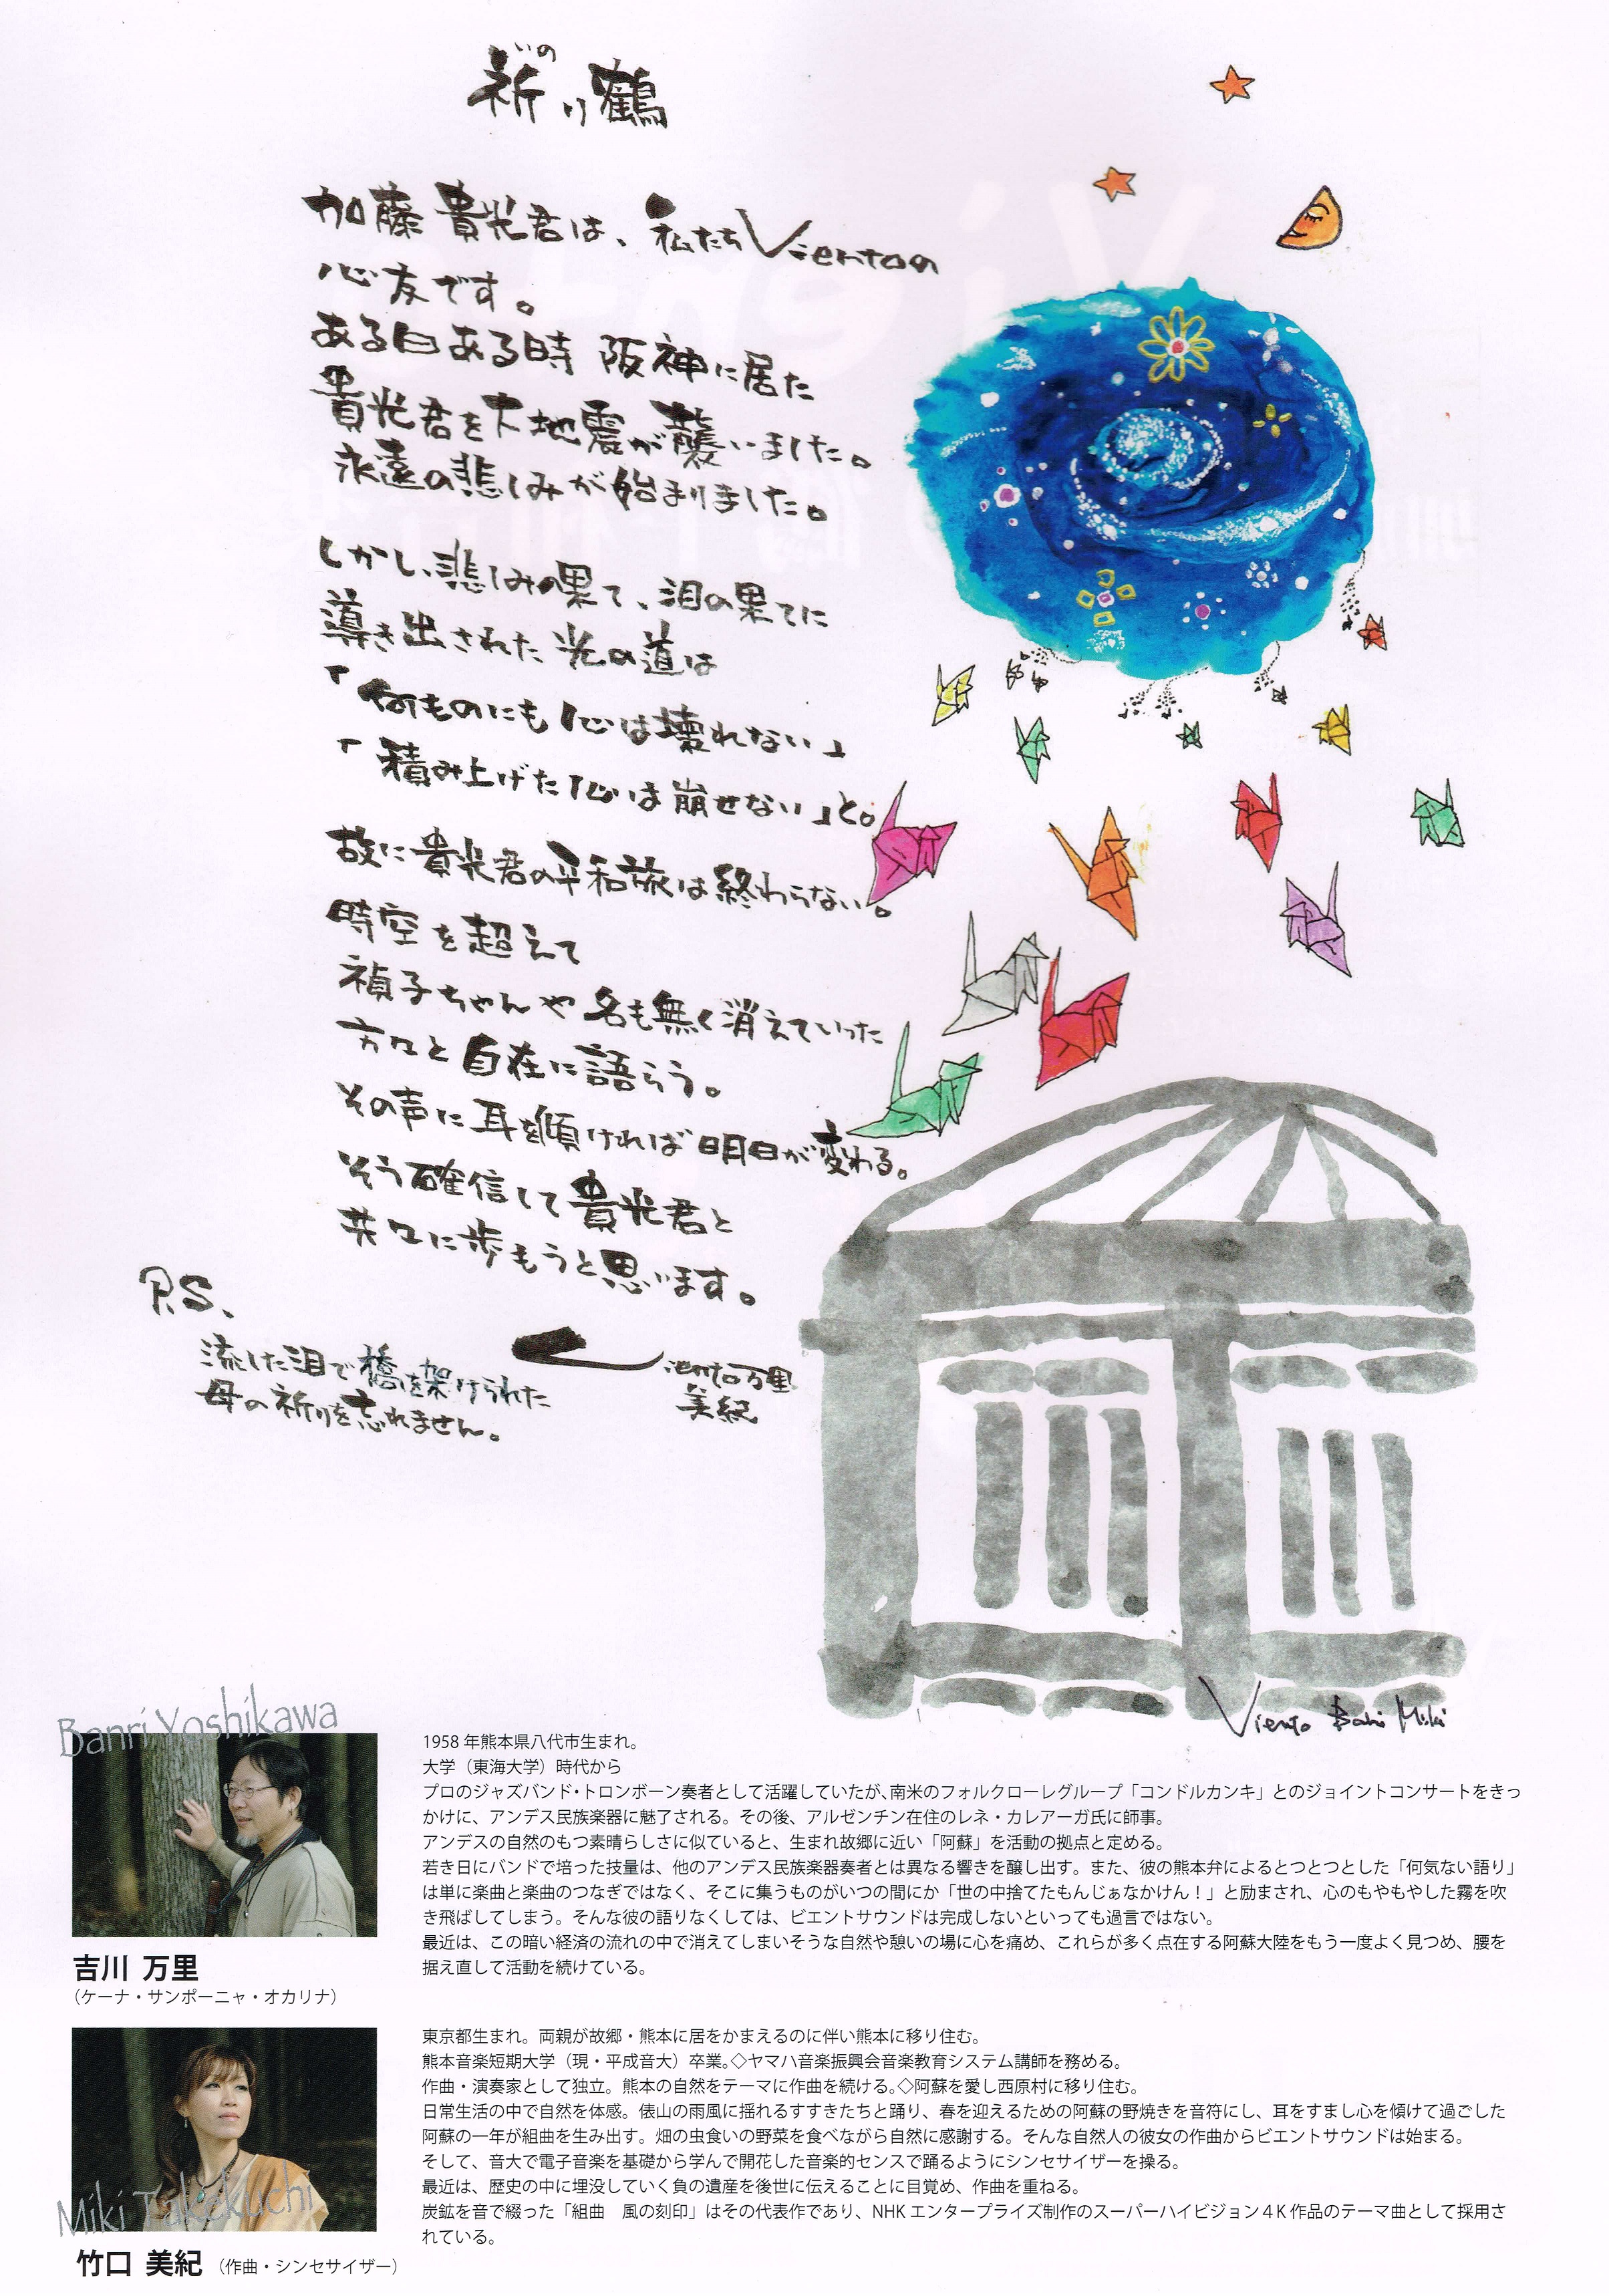 祈り鶴
いの
加藤 貴光君は、私たちVientoの
心友です。
ある日ある時 阪神に居た
貴光君を大地震が襲いました。
永遠の悲しみが始まりました。
しかし、悲しみの果て、泪の果てに
導き出された光の道は
「何ものにも心は壊れない」
「積み上げた心は崩せない」と。
故に貴光君の平和旅は終わらない。
時空を超えて
禎子ちゃんや名も無く消えていった
方々と自在に語らう。
その声に耳を傾ければ明日が変わる。
そう確信して貴光君と
共々に歩もうと思います。
Viento万里
美紀
P.S、
流した泪で橋を架けられた
母の祈りを忘れません。
Viento Banri Miki
Banri Yoshikawa
吉川 万里
（ケーナ・サンポーニャ・オカリナ）
1958 年熊本県八代市生まれ。
大学（東海大学）時代から
プロのジャズバンド・トロンボーン奏者として活躍していたが、南米のフォルクローレグループ「コンドルカンキ」とのジョイントコンサートをきっ
かけに、アンデス民族楽器に魅了される。その後、アルゼンチン在住のレネ・カレアーガ氏に師事。
アンデスの自然のもつ素晴らしさに似ていると、生まれ故郷に近い「阿蘇」を活動の拠点と定める。
若き日にバンドで培った技量は、他のアンデス民族楽器奏者とは異なる響きを醸し出す。また、彼の熊本弁によるとつとつとした「何気ない語り」
は単に楽曲と楽曲のつなぎではなく、そこに集うものがいつの間にか「世の中捨てたもんじぁなかけん！」と励まされ、心のもやもやした霧を吹
き飛ばしてしまう。そんな彼の語りなくしては、ビエントサウンドは完成しないといっても過言ではない。
最近は、この暗い経済の流れの中で消えてしまいそうな自然や憩いの場に心を痛め、これらが多く点在する阿蘇大陸をもう一度よく見つめ、腰を
据え直して活動を続けている。
Miki Takekuchi
竹口 美紀 （作曲・シンセサイザー）
東京都生まれ。両親が故郷・熊本に居をかまえるのに伴い熊本に移り住む。
熊本音楽短期大学（現・平成音大）卒業。◇ヤマハ音楽振興会音楽教育システム講師を務める。
作曲・演奏家として独立。熊本の自然をテーマに作曲を続ける。◇阿蘇を愛し西原村に移り住む。
日常生活の中で自然を体感。俵山の雨風に揺れるすすきたちと踊り、春を迎えるための阿蘇の野焼きを音符にし、耳をすまし心を傾けて過ごした
阿蘇の一年が組曲を生み出す。畑の虫食いの野菜を食べながら自然に感謝する。そんな自然人の彼女の作曲からビエントサウンドは始まる。
そして、音大で電子音楽を基礎から学んで開花した音楽的センスで踊るようにシンセサイザーを操る。
最近は、歴史の中に埋没していく負の遺産を後世に伝えることに目覚め、作曲を重ねる。
炭鉱を音で綴った「組曲　風の刻印」はその代表作であり、NHK エンタープライズ制作のスーパーハイビジョン４K 作品のテーマ曲として採用さ
れている。